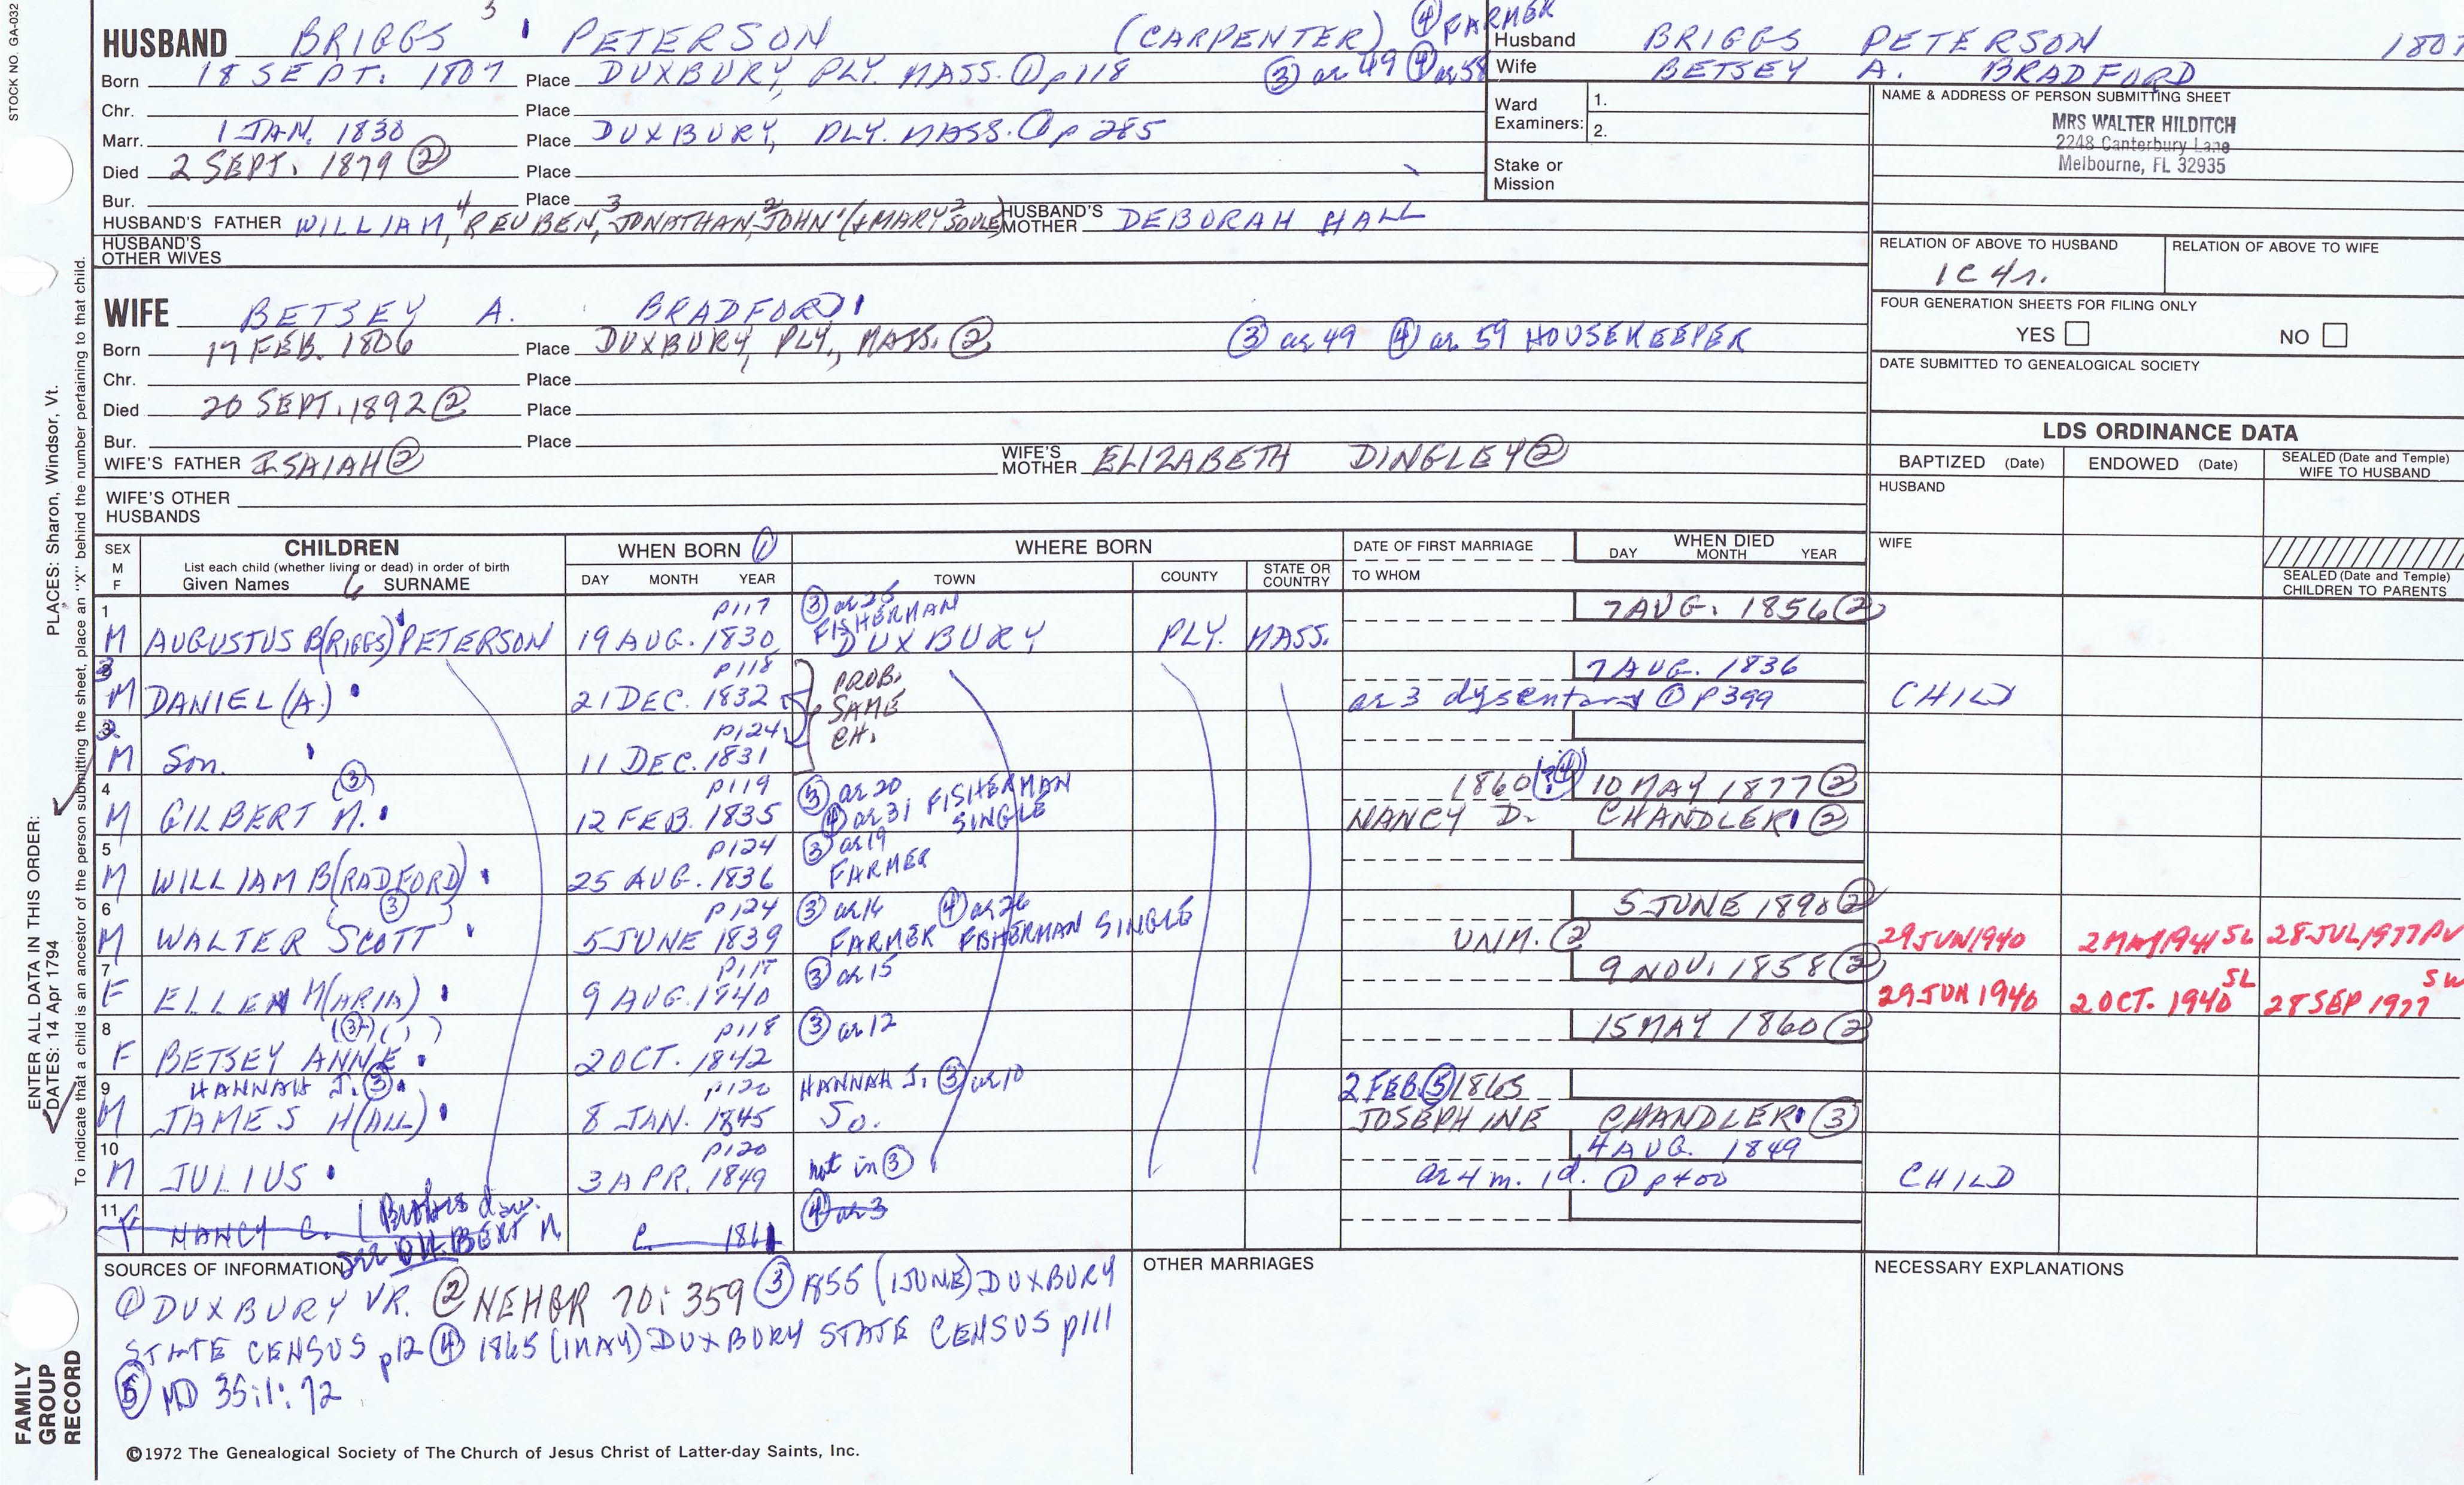 STOCK NO. GA-032
HUSBAND BRIGGS PETERSON (CARPENTER) ④ FARMER
Born 18 SEPT. 1807 Place DUXBURY, PLY. MASS. ① p118 ③ ae 49 ④ ae 58
Chr. Place
Marr. 1 JAN. 1830 Place DUXBURY, PLY. MASS. ① p 285
Died 2 SEPT. 1879 ② Place
Bur. Place
HUSBAND'S FATHER WILLIAM, 4 REUBEN, 3 JONATHAN, 2 JOHN 1 (+ MARY 2 SOULE) HUSBAND'S MOTHER DEBORAH HALL
HUSBAND'S OTHER WIVES
Husband BRIGGS PETERSON 1807
Wife BETSEY A. BRADFORD
Ward Examiners: 1.
2.
Stake or Mission
NAME & ADDRESS OF PERSON SUBMITTING SHEET
MRS WALTER HILDITCH
2248 Canterbury Lane
Melbourne, FL 32935
RELATION OF ABOVE TO HUSBAND RELATION OF ABOVE TO WIFE
1C 4r.
FOUR GENERATION SHEETS FOR FILING ONLY
YES NO
DATE SUBMITTED TO GENEALOGICAL SOCIETY
WIFE BETSEY A. BRADFORD
Born 17 FEB. 1806 Place DUXBURY, PLY., MASS. ② ③ ae 49 ④ ae 59 HOUSEKEEPER
Chr. Place
Died 20 SEPT. 1892 ② Place
Bur. Place
WIFE'S FATHER ISAIAH ② WIFE'S MOTHER ELIZABETH DINGLEY ②
WIFE'S OTHER HUSBANDS
LDS ORDINANCE DATA
BAPTIZED (Date) ENDOWED (Date) SEALED (Date and Temple) WIFE TO HUSBAND
HUSBAND
WIFE
SEALED (Date and Temple) CHILDREN TO PARENTS
SEX M F CHILDREN WHEN BORN ① WHERE BORN DATE OF FIRST MARRIAGE WHEN DIED DAY MONTH YEAR
List each child (whether living or dead) in order of birth
Given Names SURNAME DAY MONTH YEAR TOWN COUNTY STATE OR COUNTRY TO WHOM
1 p117 ③ ae 25 FISHERMAN 7 AUG. 1856 ②
M AUGUSTUS B(RIGGS) PETERSON 19 AUG. 1830 DUXBURY PLY. MASS.
p118 PROB. SAME CH. 7 AUG. 1836
M DANIEL (A.) 21 DEC. 1832 ae 3 dysentary ① p399 CHILD
p124
M Son. 11 DEC. 1831
4 ③ p119 ③ ae 20 1860 ④ 10 MAY 1877 ②
M GILBERT M. 12 FEB. 1835 ④ ae 31 FISHERMAN SINGLE NANCY D. CHANDLER ②
5 p124 ③ ae 19
M WILLIAM B(RADFORD) 25 AUG. 1836 FARMER
6 ③ p124 ③ ae 16 ④ ae 26 5 JUNE 1898 ②
M WALTER SCOTT 5 JUNE 1839 FARMER FISHERMAN SINGLE UNM. ② 29 JUN 1940 2 MAY 1941 SL 28 JUL 1977 PV
7 p117 ③ ae 15 9 NOV. 1858 ②
F ELLEN M(ARIA) 9 AUG. 1940 29 JUN 1940 2 OCT. 1940 SL 28 SEP 1977 SW
8 ③ p118 ③ ae 12 15 MAY 1860 ②
F BETSEY ANNE 2 OCT. 1842
9 HANNAH J. ③ p120 HANNAH J. ③ ae 10 2 FEB. ⑤ 1865
M JAMES H(ALL) 8 JAN. 1845 So. JOSEPHINE CHANDLER ③
10 p120 4 AUG. 1849
M JULIUS 3 APR. 1849 not in ③ ae 4 m. 1d. ① p400 CHILD
11 F NANCY C. see GILBERT M C 1861 ④ ae 3
SOURCES OF INFORMATION
① DUXBURY VR. ② NEHGR 70:359 ③ 1855 (1 JUNE) DUXBURY
STATE CENSUS p12 ④ 1865 (1 MAY) DUXBURY STATE CENSUS p111
⑤ MD 35:1:72
OTHER MARRIAGES
NECESSARY EXPLANATIONS
©1972 The Genealogical Society of The Church of Jesus Christ of Latter-day Saints, Inc.
FAMILY GROUP RECORD
ENTER ALL DATA IN THIS ORDER:
DATES: 14 Apr 1794
PLACES: Sharon, Windsor, Vt.
To indicate that a child is an ancestor of the person submitting the sheet, place an "X" behind the number pertaining to that child.